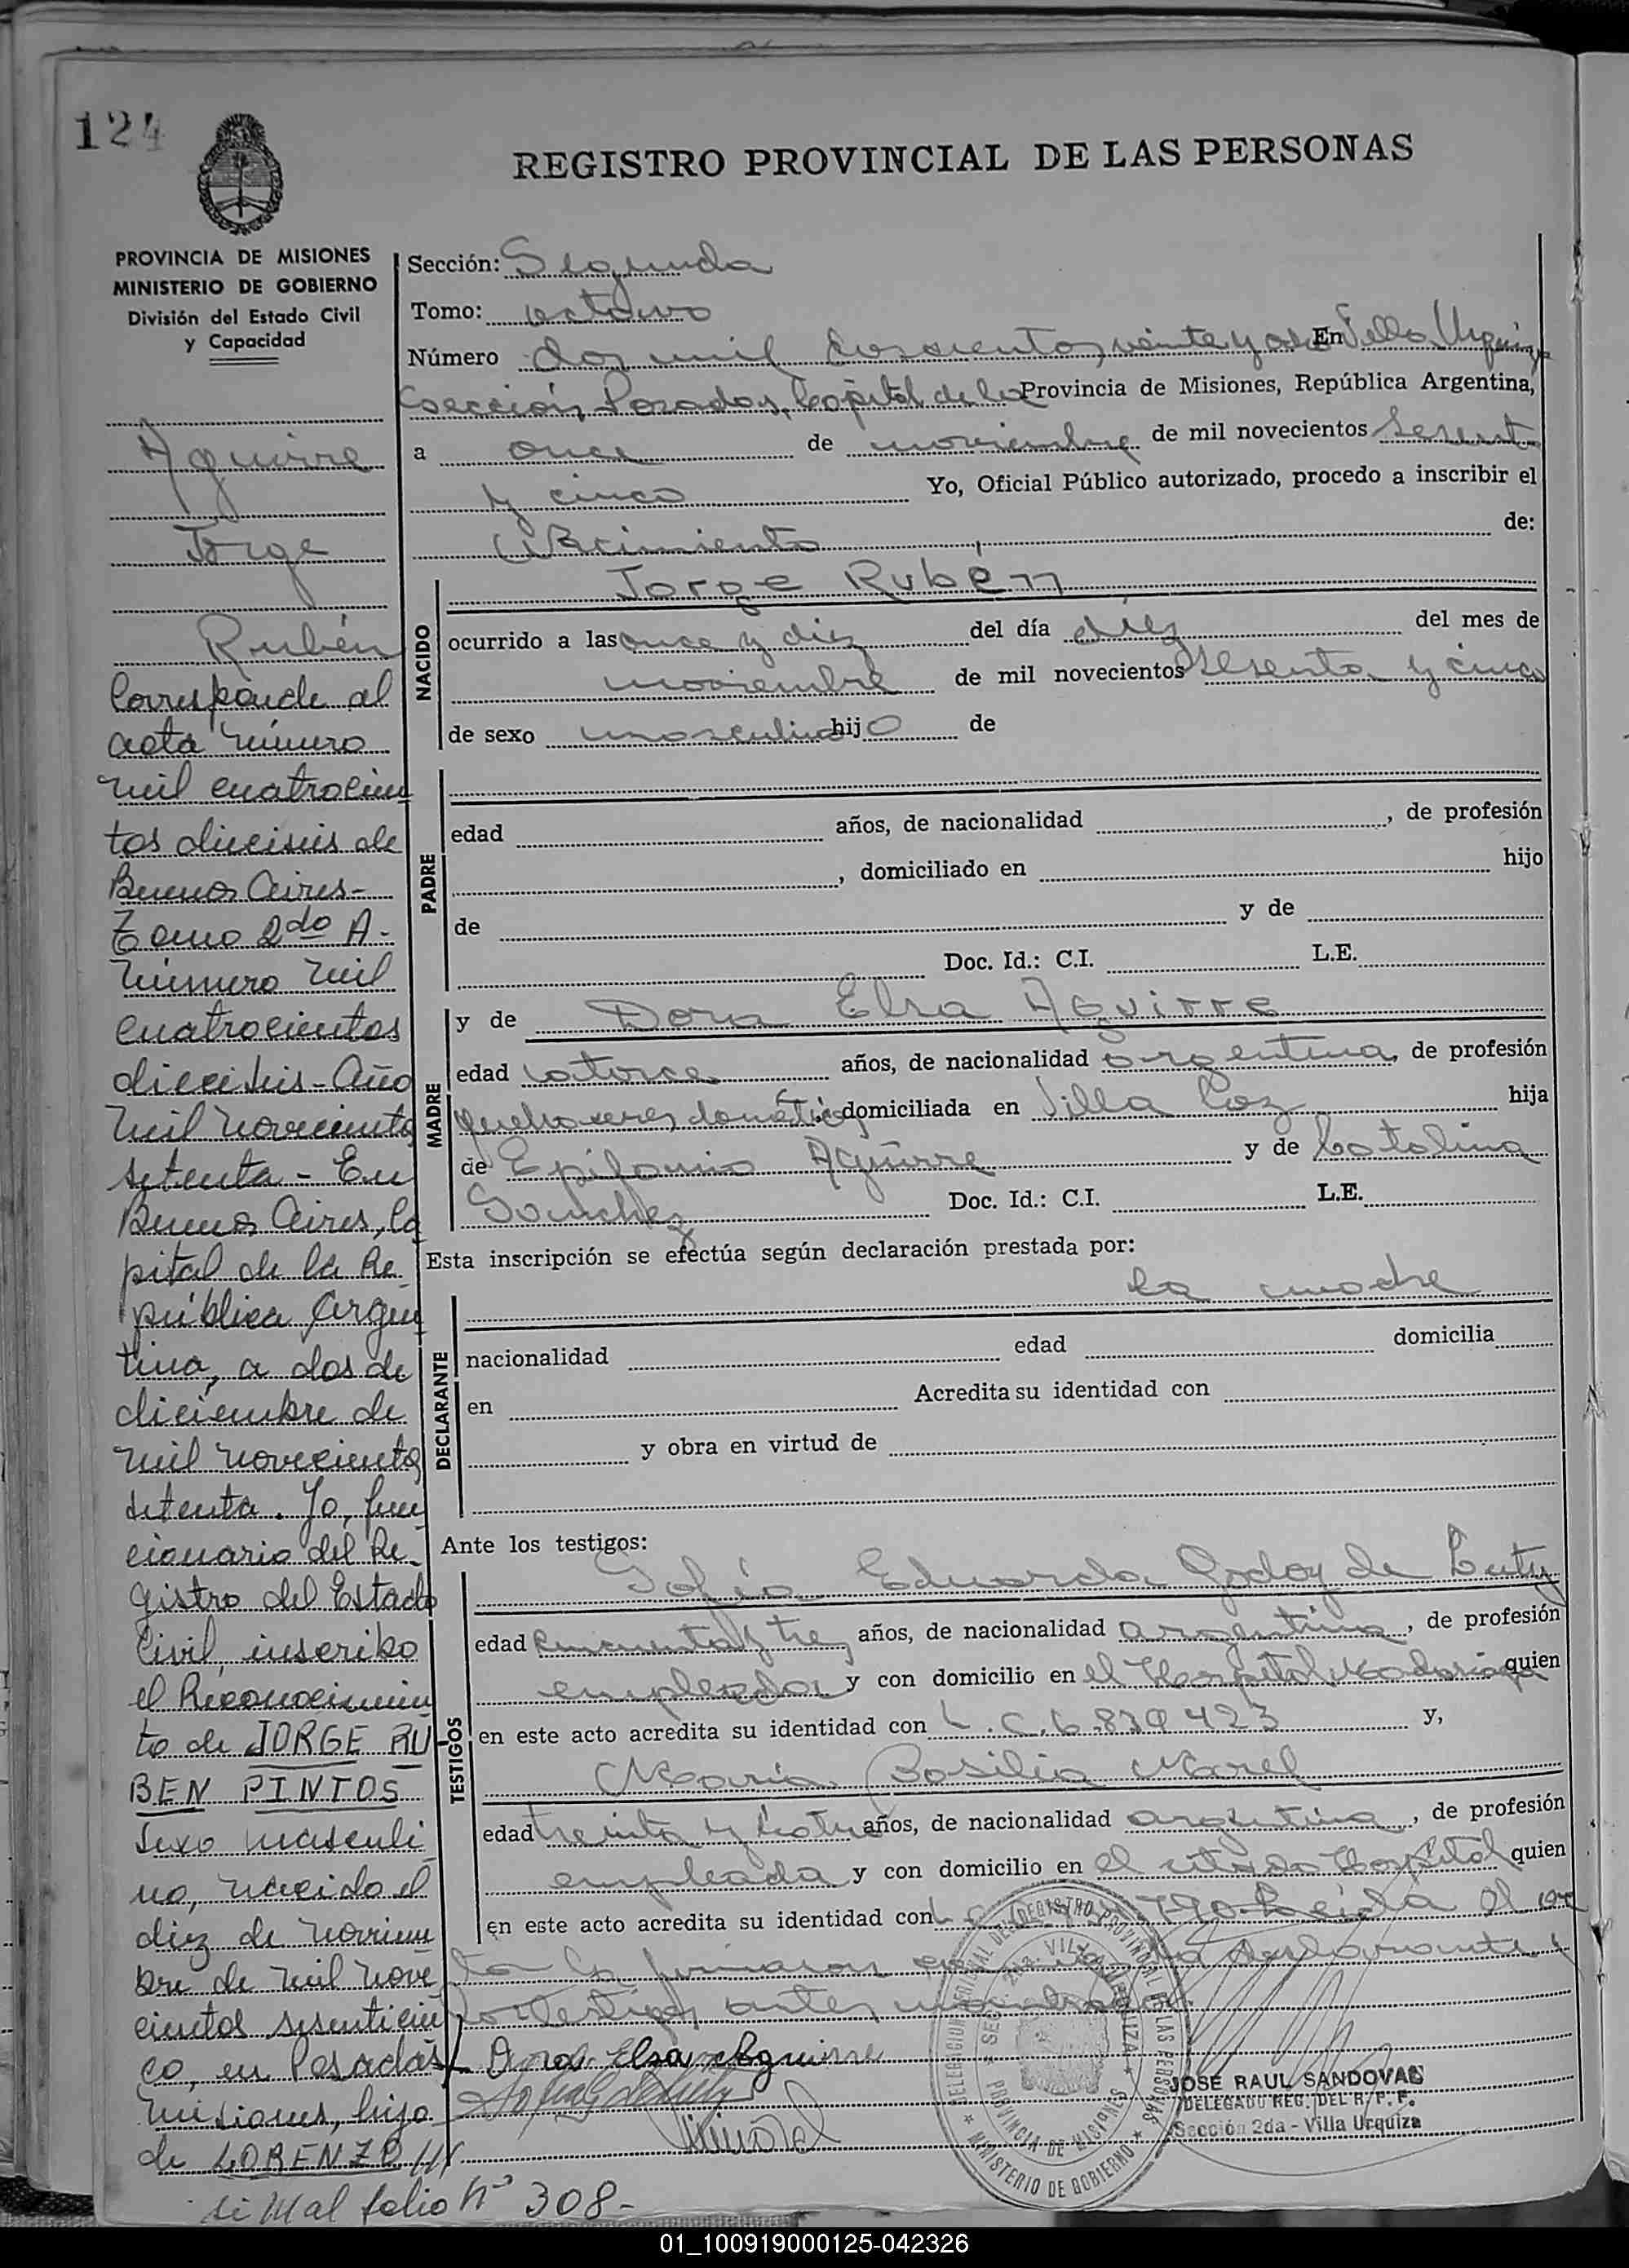 124
REGISTRO PROVINCIAL DE LAS PERSONAS
PROVINCIA DE MISIONES
MINISTERIO DE GOBIERNO
División del Estado Civil
y Capacidad
Aguirre
Jorge
Rubén
Corresponde al
acta número
mil cuatrocien
tos dieciseis de
Buenos Aires-
Tomo 2do A-
Número mil
cuatrocientos
dieciseis - Año
mil novecientos
setenta - En
Buenos Aires, Ca
pital de la Re
pública Argen
tina, a dos de
diciembre de
mil novecientos
setenta. Yo, fun
cionario del Re-
gistro del Estado
Civil, inscribo
el Reconocimien
to de JORGE RU-
BEN PINTOS
sexo masculi
no, nacido el
diez de noviem
bre de mil nove
cientos sesenticin
co, en Posadas
Misiones, hijo
de LORENZO ///
al folio Nº 308-
Sección: Segunda
Tomo: octavo
Número dos mil doscientos veinte y ocho En Villa Urquiza
sección, Posadas, Capital de la Provincia de Misiones, República Argentina,
a once de noviembre de mil novecientos sesenta
y cinco Yo, Oficial Público autorizado, procedo a inscribir el
Nacimiento de:
NACIDO
Jorge Rubén
ocurrido a las once y diez del día diez del mes de
noviembre de mil novecientos sesenta y cinco
de sexo masculino hijo de
PADRE
edad años, de nacionalidad , de profesión
, domiciliado en hijo
de y de
Doc. Id.: C.I. L.E.
MADRE
y de Dora Elsa Aguirre
edad catorce años, de nacionalidad argentina, de profesión
quehaceres domésticos domiciliada en Villa Coz hija
de Epifanio Aguirre y de Catalina
Sanchez Doc. Id.: C.I. L.E.
Esta inscripción se efectúa según declaración prestada por:
DECLARANTE
la madre
nacionalidad edad domicilia
en Acredita su identidad con
y obra en virtud de
Ante los testigos:
TESTIGOS
Sofía Eduarda Godoy de
edad cincuenta y tres años, de nacionalidad argentina, de profesión
empleada y con domicilio en el Hospital Madariaga quien
en este acto acredita su identidad con L.C. 6.839.423 y,
María Basilia Marel
edad treinta y cuatro años, de nacionalidad argentina, de profesión
empleada y con domicilio en el citado Hospital quien
en este acto acredita su identidad con L.C. Leída el ac
ta la firmaron la declarante y
los testigos antes
Dora Elsa Aguirre
DELEGACION REGIONAL DEL REGISTRO PROVINCIAL DE LAS PERSONAS
SECC. 2da. VILLA URQUIZA
PROVINCIA DE MISIONES
MINISTERIO DE GOBIERNO
JOSE RAUL SANDOVAL
DELEGADO REG. DEL R. P. P.
Sección 2da - Villa Urquiza
01_100919000125-042326